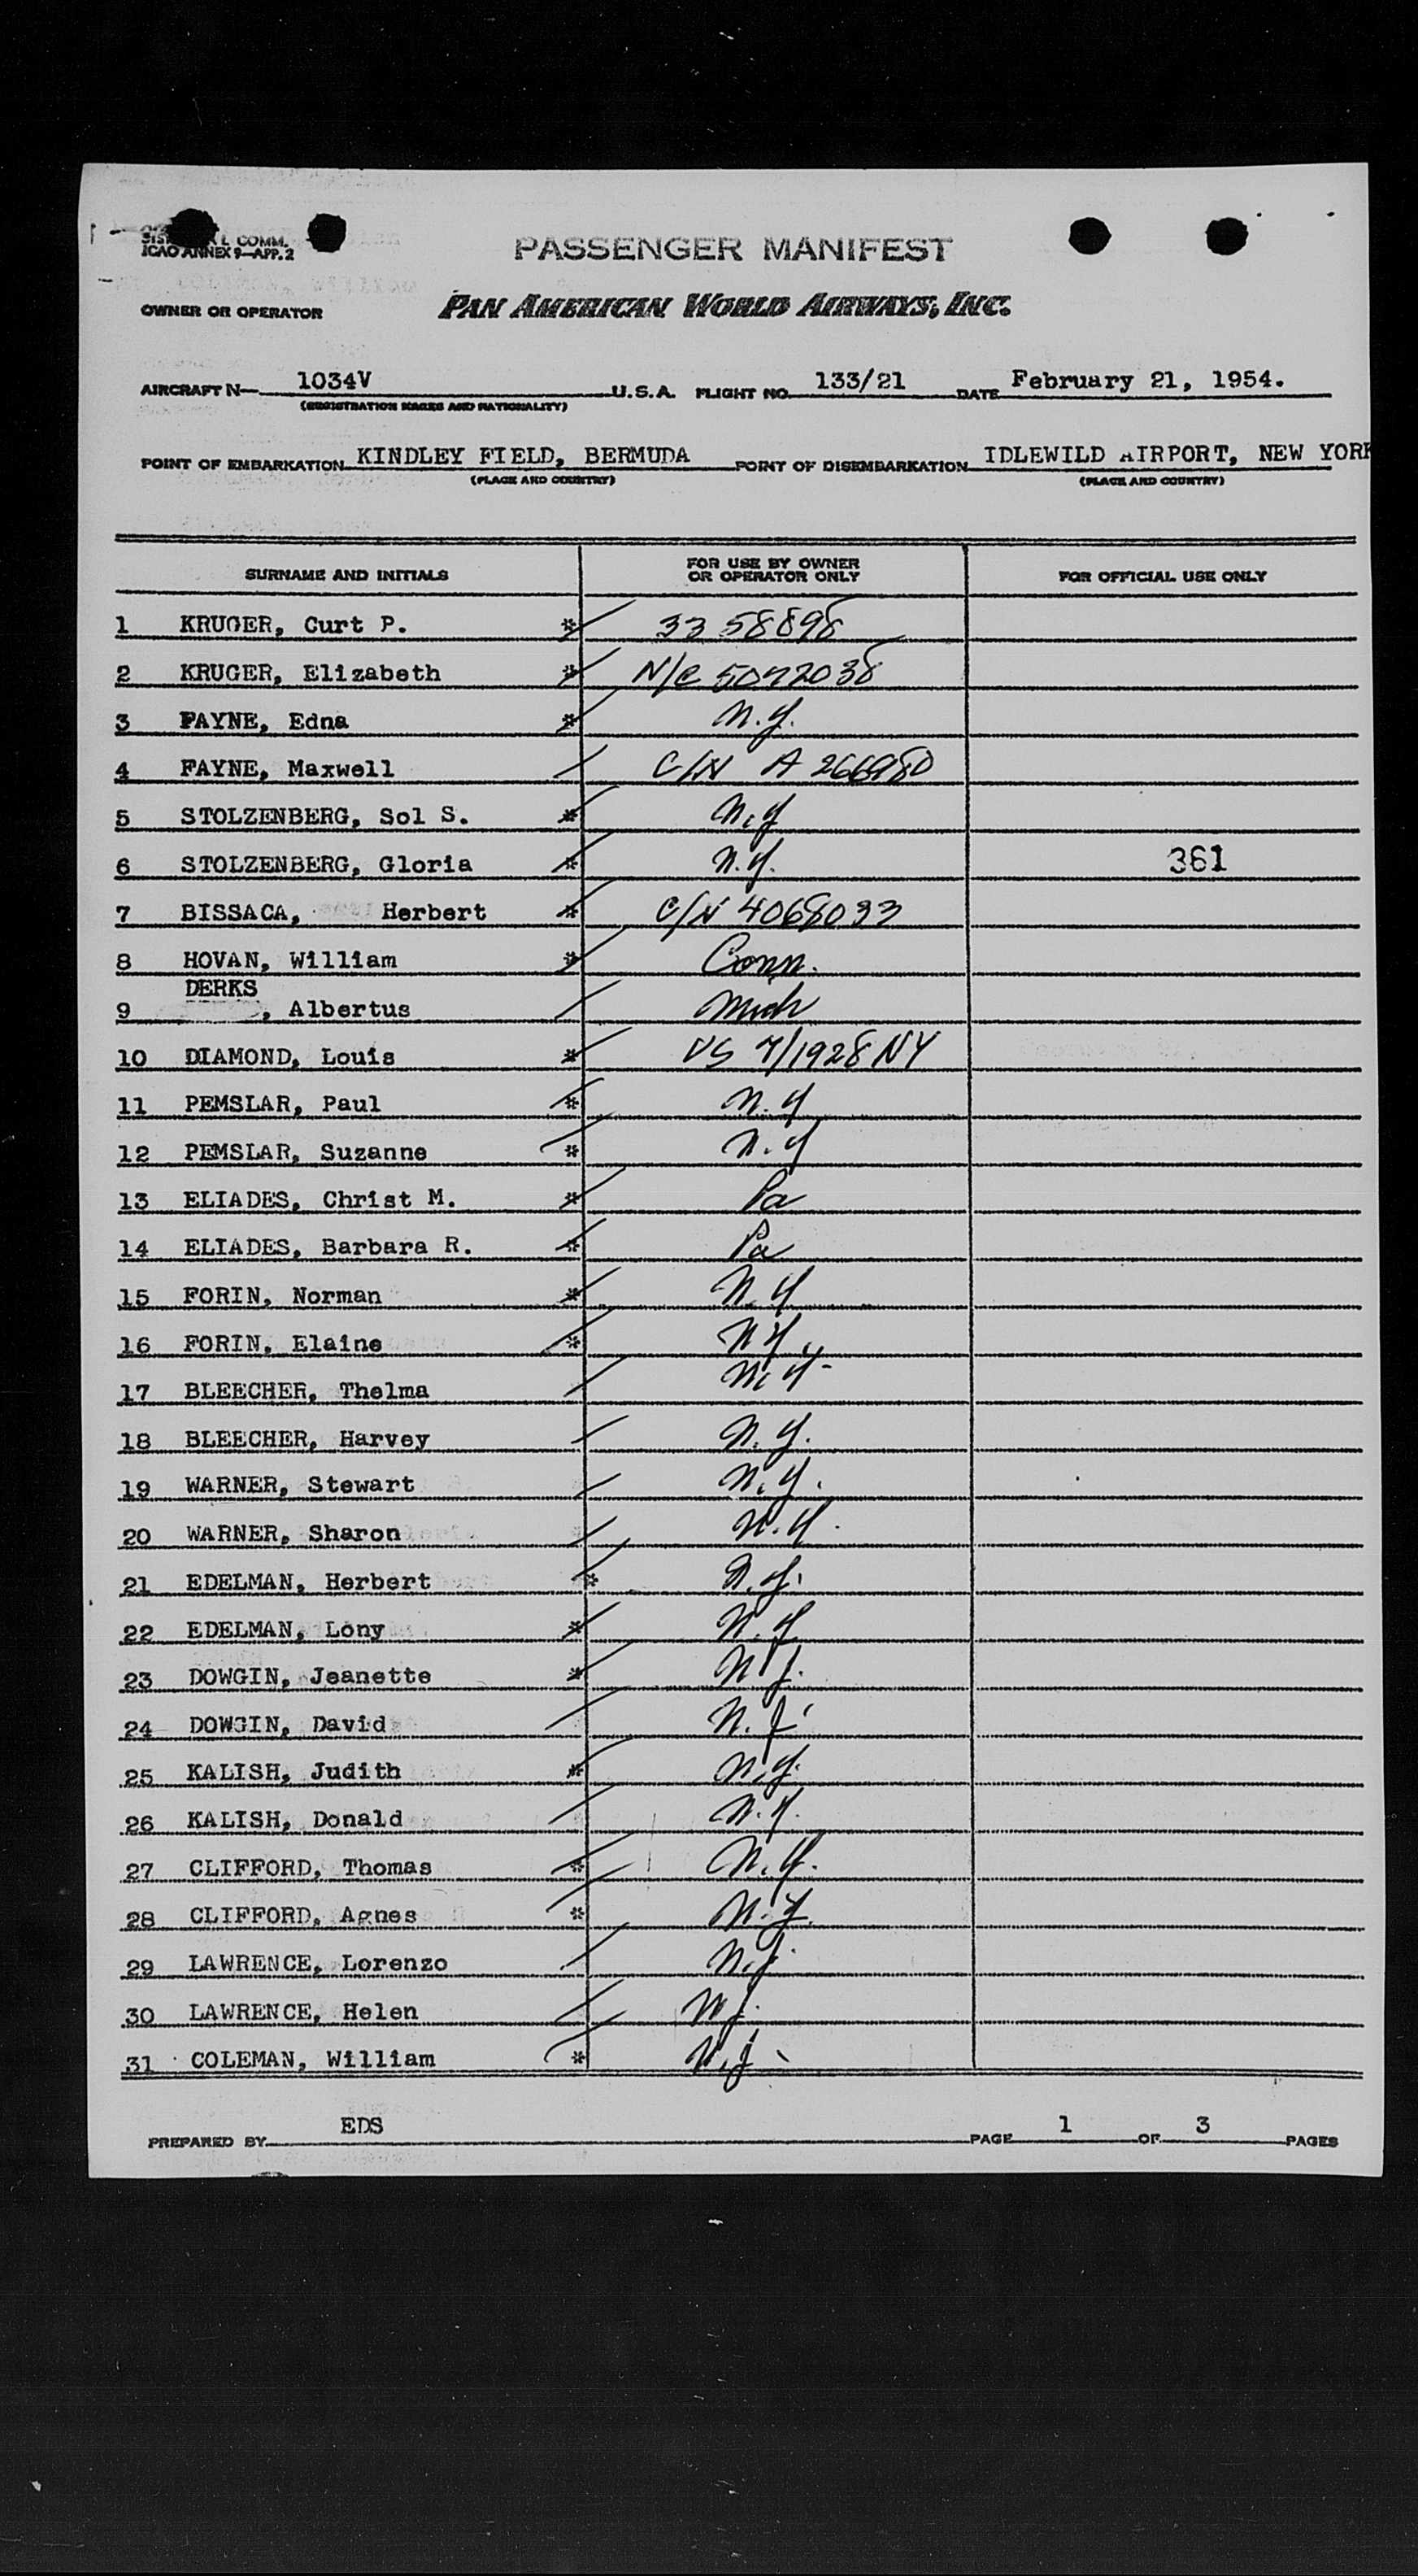 COMM.
ICAO ANNEX 9—APP. 2
PASSENGER MANIFEST
OWNER OR OPERATOR PAN AMERICAN WORLD AIRWAYS, INC.
AIRCRAFT N— 1034V U.S.A. FLIGHT NO. 133/21 DATE February 21, 1954.
(REGISTRATION MARKS AND NATIONALITY)
POINT OF EMBARKATION KINDLEY FIELD, BERMUDA POINT OF DISEMBARKATION IDLEWILD AIRPORT, NEW YORK
(PLACE AND COUNTRY) (PLACE AND COUNTRY)
SURNAME AND INITIALS FOR USE BY OWNER OR OPERATOR ONLY FOR OFFICIAL USE ONLY
1 KRUGER, Curt P. * 3358898
2 KRUGER, Elizabeth * N/C 5072038
3 PAYNE, Edna * N.Y.
4 PAYNE, Maxwell C/N A 266980
5 STOLZENBERG, Sol S. * N.Y
6 STOLZENBERG, Gloria * N.Y. 361
7 BISSACA, Herbert * C/N 4068033
8 HOVAN, William * Conn.
DERKS
9 , Albertus Mich
10 DIAMOND, Louis * VS 7/1928 NY
11 PEMSLAR, Paul * N.Y
12 PEMSLAR, Suzanne * N.Y
13 ELIADES, Christ M. * Pa
14 ELIADES, Barbara R. * Pa
15 FORIN, Norman * N.Y
16 FORIN, Elaine * NY.
17 BLEECHER, Thelma N.Y
18 BLEECHER, Harvey N.Y.
19 WARNER, Stewart N.Y.
20 WARNER, Sharon N.Y.
21 EDELMAN, Herbert * N.Y.
22 EDELMAN, Lony * N.Y
23 DOWGIN, Jeanette * N J.
24 DOWGIN, David N.J.
25 KALISH, Judith * N.Y.
26 KALISH, Donald N.Y.
27 CLIFFORD, Thomas * N.Y.
28 CLIFFORD, Agnes * N.Y.
29 LAWRENCE, Lorenzo N.J.
30 LAWRENCE, Helen N J.
31 COLEMAN, William * N.J.
PREPARED BY EDS PAGE 1 OF 3 PAGES